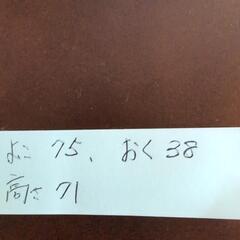 よこ 75、おく38
高さ 71